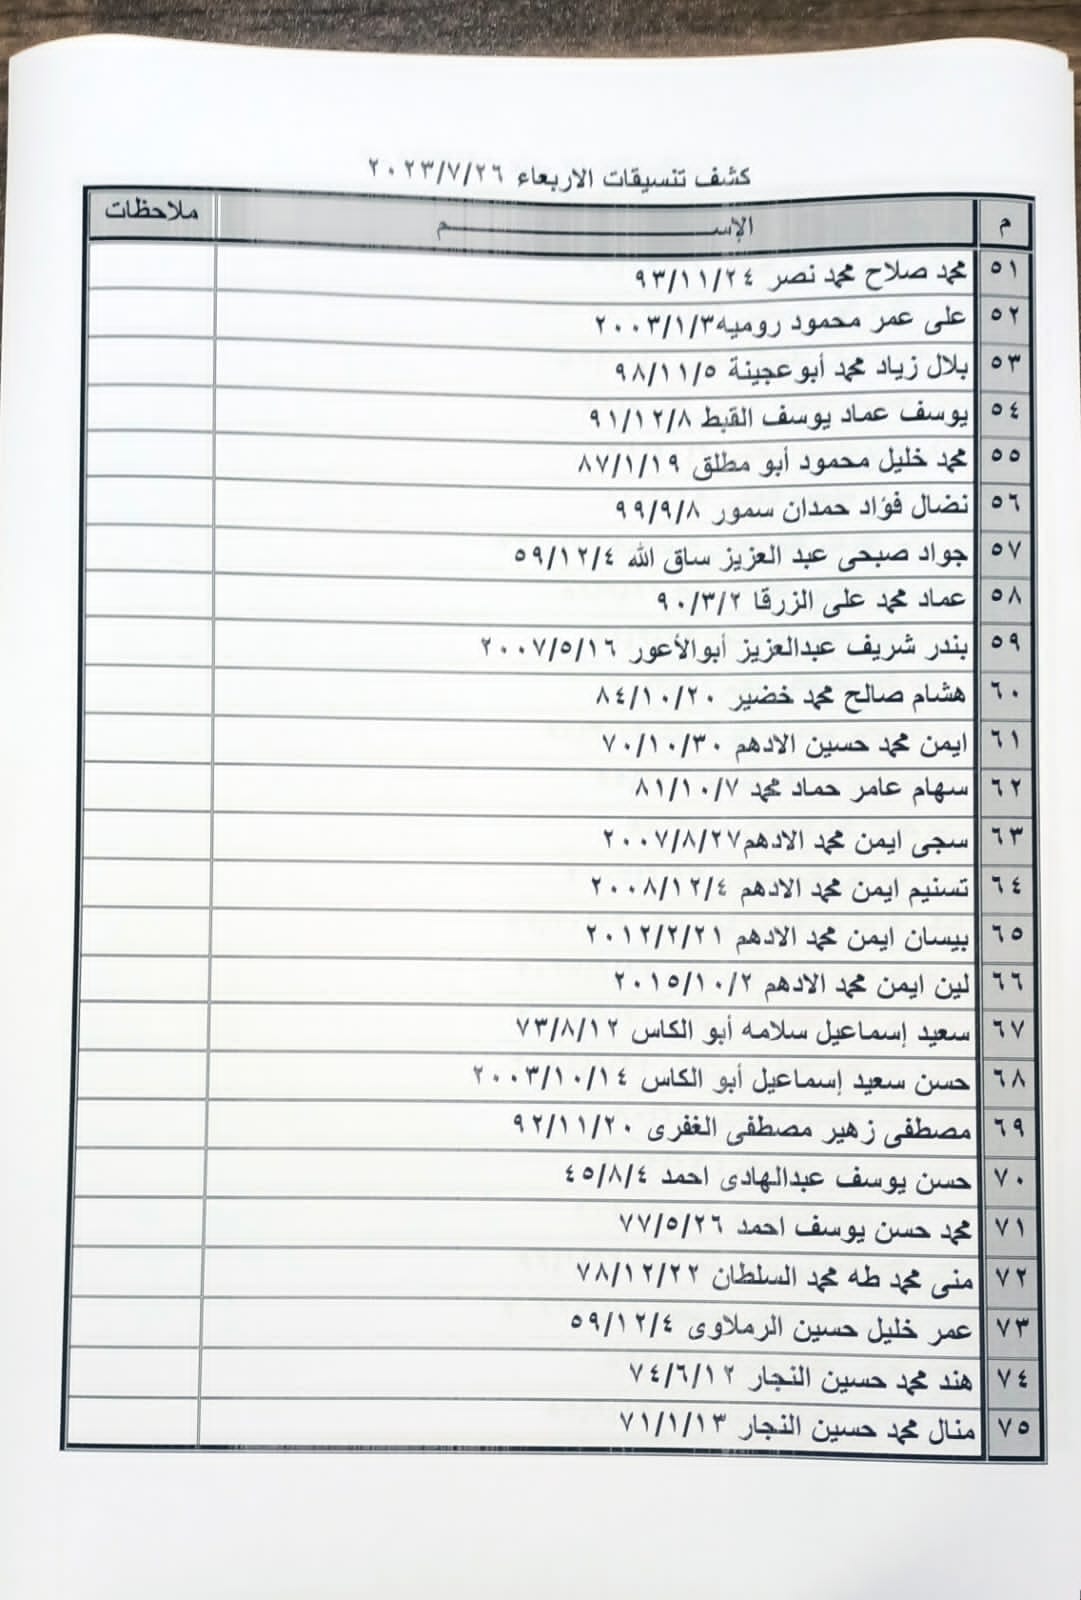 كشف تنسيقات الاربعاء ٢٠٢٣/٧/٢٦
م الإســـــــــم ملاحظات
٥١ محمد صلاح محمد نصر ٩٣/١١/٢٤
٥٢ على عمر محمود روميه٢٠٠٣/١/٣
٥٣ بلال زياد محمد أبوعجينة ٩٨/١١/٥
٥٤ يوسف عماد يوسف القبط ٩١/١٢/٨
٥٥ محمد خليل محمود أبو مطلق ٨٧/١/١٩
٥٦ نضال فؤاد حمدان سمور ٩٩/٩/٨
٥٧ جواد صبحى عبد العزيز ساق الله ٥٩/١٢/٤
٥٨ عماد محمد على الزرقا ٩٠/٣/٢
٥٩ بندر شريف عبدالعزيز أبوالأعور ٢٠٠٧/٥/١٦
٦٠ هشام صالح محمد خضير ٨٤/١٠/٢٠
٦١ ايمن محمد حسين الادهم ٧٠/١٠/٣٠
٦٢ سهام عامر حماد محمد ٨١/١٠/٧
٦٣ سجى ايمن محمد الادهم٢٠٠٧/٨/٢٧
٦٤ تسنيم ايمن محمد الادهم ٢٠٠٨/١٢/٤
٦٥ بيسان ايمن محمد الادهم ٢٠١٢/٢/٢١
٦٦ لين ايمن محمد الادهم ٢٠١٥/١٠/٢
٦٧ سعيد إسماعيل سلامه أبو الكاس ٧٣/٨/١٢
٦٨ حسن سعيد إسماعيل أبو الكاس ٢٠٠٣/١٠/١٤
٦٩ مصطفى زهير مصطفى الغفرى ٩٢/١١/٢٠
٧٠ حسن يوسف عبدالهادى احمد ٤٥/٨/٤
٧١ محمد حسن يوسف احمد ٧٧/٥/٢٦
٧٢ منى محمد طه محمد السلطان ٧٨/١٢/٢٢
٧٣ عمر خليل حسين الرملاوى ٥٩/١٢/٤
٧٤ هند محمد حسين النجار ٧٤/٦/١٢
٧٥ منال محمد حسين النجار ٧١/١/١٣